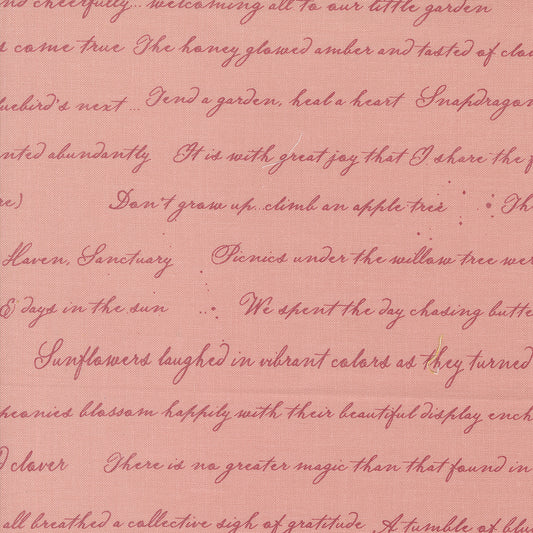 cheerfully... welcoming all to our little garden
come true The honey glowed amber and tasted of
next ... Tend a garden, heal a heart
abundantly It is with great joy that I share the
Don't grow up..climb an apple tree
Haven, Sanctuary Picnics under the willow tree
& days in the sun ... We spent the day chasing
Sunflowers laughed in vibrant colors as they turned
peonies blossom happily with their beautiful display
clover There is no greater magic than that found in
all breathed a collective sigh of gratitude A tumble of